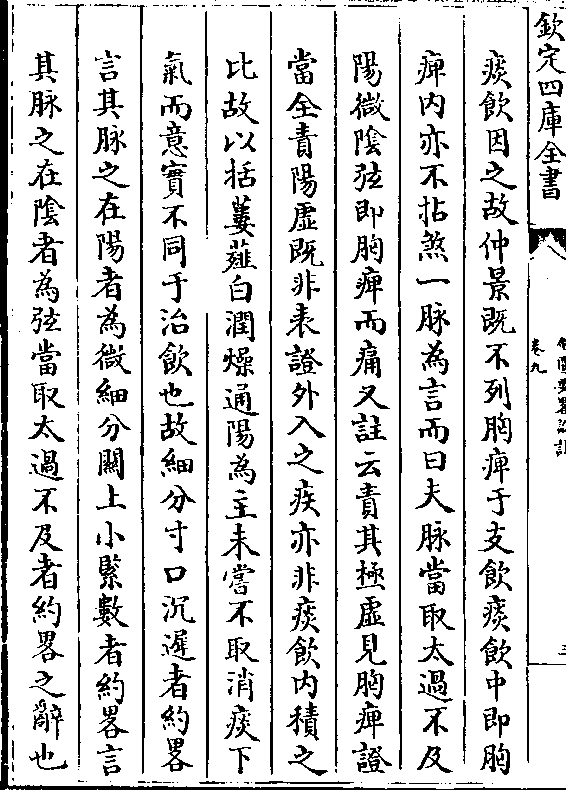 欽定四庫全書
卷九
三
痰飲因之故仲景既不列胸痺于支飲痰飲中即胸
痺内亦不拈煞一脉為言而曰夫脉當取太過不及
陽微陰弦即胸痺而痛又註云責其極虛見胸痺證
當全責陽虛既非表證外入之疾亦非痰飲内積之
比故以括蔞薤白潤燥通陽為主未嘗不取消痰下
氣而意實不同于治飲也故細分寸口沉遲者約畧
言其脉之在陽者為微細分關上小緊數者約畧言
其脉之在陰者為弦當取太過不及者約畧之辭也